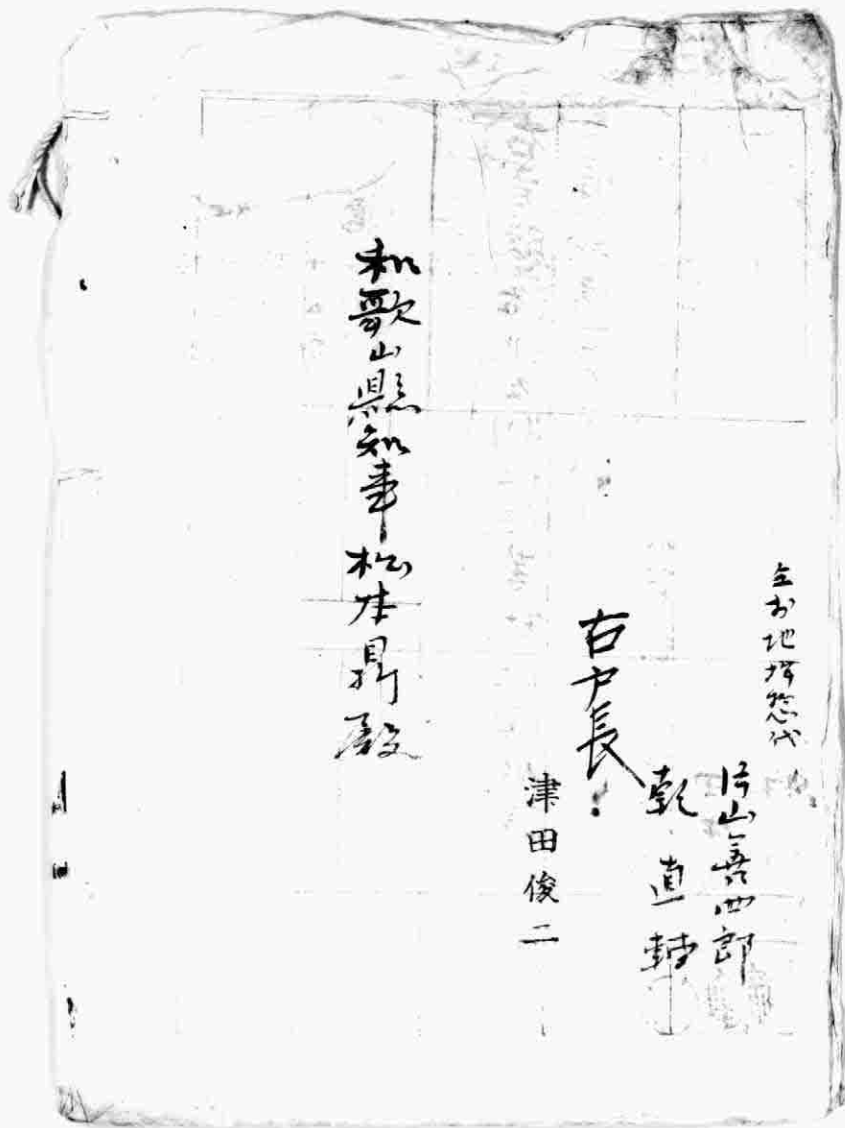 仝村地槢惣代
片山善四郎
乾直軸
右戸長
津田俊二
和歌山縣知事松本鼎殿